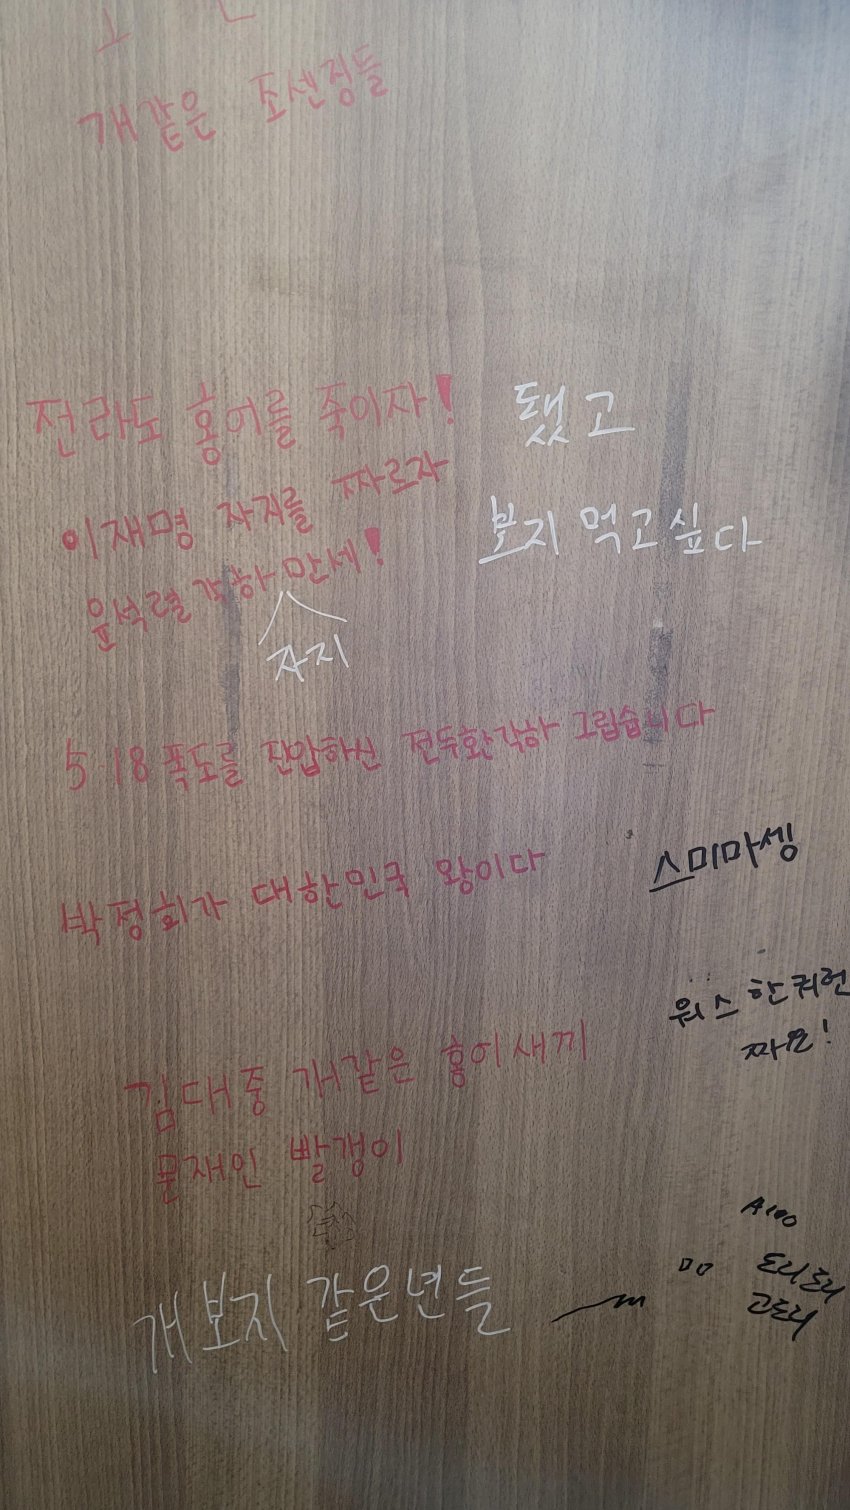 개같은 조센징들
전라도 홍어를 죽이자!
이재명 자지를 짜르자
윤석렬 각하 만세!
자지
됐고
보지 먹고싶다
5.18 폭도를 진압하신 전두환각하 그립습니다
박정희가 대한민국 왕이다
스미마셍
워스 한궈런
짜요!
김대중 개같은 홍어새끼
문재인 빨갱이
개보지 같은년들
도리도리
고도리